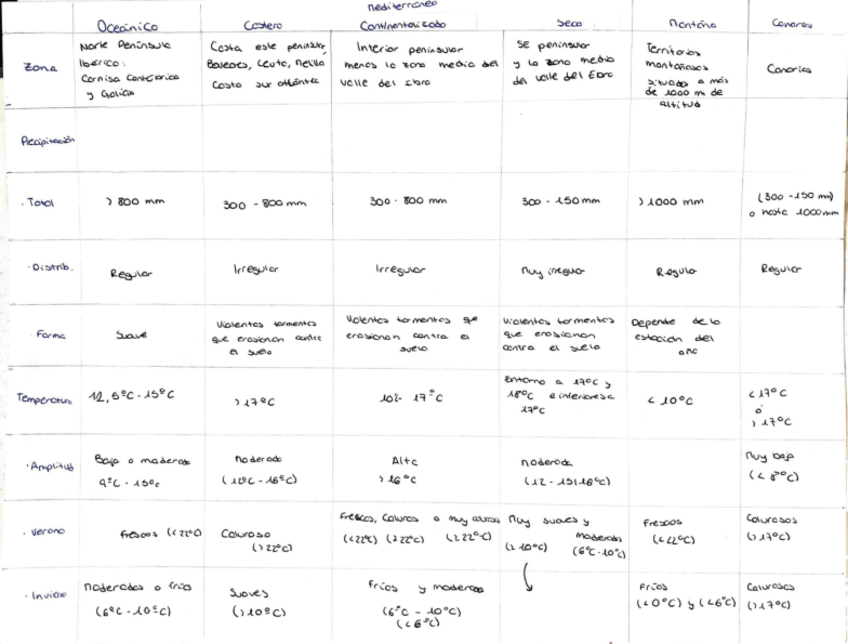 mediterráneo
Oceánico Costero Continentalizado Seco Montaña Canarias
Zona
Norte Península
Ibérica:
Cornisa Cantábrica
y Galicia
Costa este peninsular,
Baleares, Ceuta, Melilla
Costa sur atlántica
Interior peninsular
menos la zona media del
valle del Ebro
SE peninsular
y la zona media
del valle del Ebro
Territorios
montañosos
situado a más
de 1000 m de
altitud
Canarias
Precipitación
· Total > 800 mm 300 - 800 mm 300 - 800 mm 300 - 150 mm > 1000 mm (300 - 150 mm)
o hasta 1000 mm
· Distrib. Regular Irregular Irregular Muy irregular Regula Regular
· Forma Suave
Violentas tormentas
que erosionan contra
el suelo
Violentas tormentas que
erosionan contra el
suelo
Violentas tormentas
que erosionan
contra el suelo
Depente de la
estación del
año
Temperatura 12,5ºC - 15ºC > 17ºC 10º - 17ºC
Entorno a 17ºC y
18ºC e inferiores a
17ºC
< 10ºC
< 17ºC
ó
> 17ºC
· Amplitud
Baja o moderada
9ºC - 15ºC
moderada
(12ºC - 16ºC)
Alta
> 16ºC
moderada
(12 - 15|16ºC)
Muy baja
(< 8ºC)
· Verano
Frescos (< 22ºC)
Caluroso
(> 22ºC)
Frescos, Caluros o muy
(< 22ºC) (≥ 22ºC) (≥ 22ºC)
Muy suaves y
moderados
(≥ 10ºC) (6ºC - 10ºC)
Frescos
(< 22ºC)
Calurosos
(> 17ºC)
· Invierno
moderados o fríos
(6ºC - 10ºC)
Suaves
(> 10ºC)
fríos y moderado
(6ºC - 10ºC)
(< 6ºC)
Fríos
(< 0ºC) y (< 6ºC)
Calurosos
(> 17ºC)